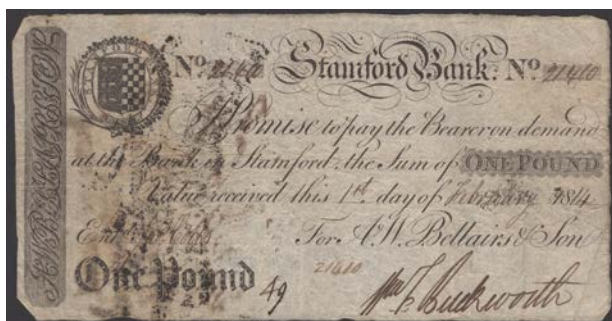 STAMFORD
No. 21410 Stamford Bank. No. 21410
Promise to pay the Bearer on demand
at the Bank in Stamford, the Sum of ONE POUND
Value received this 1st. day of February 1814
Entd. For A.W. Bellairs & Son
One Pound 21410
49 Wm. E. Buckworth